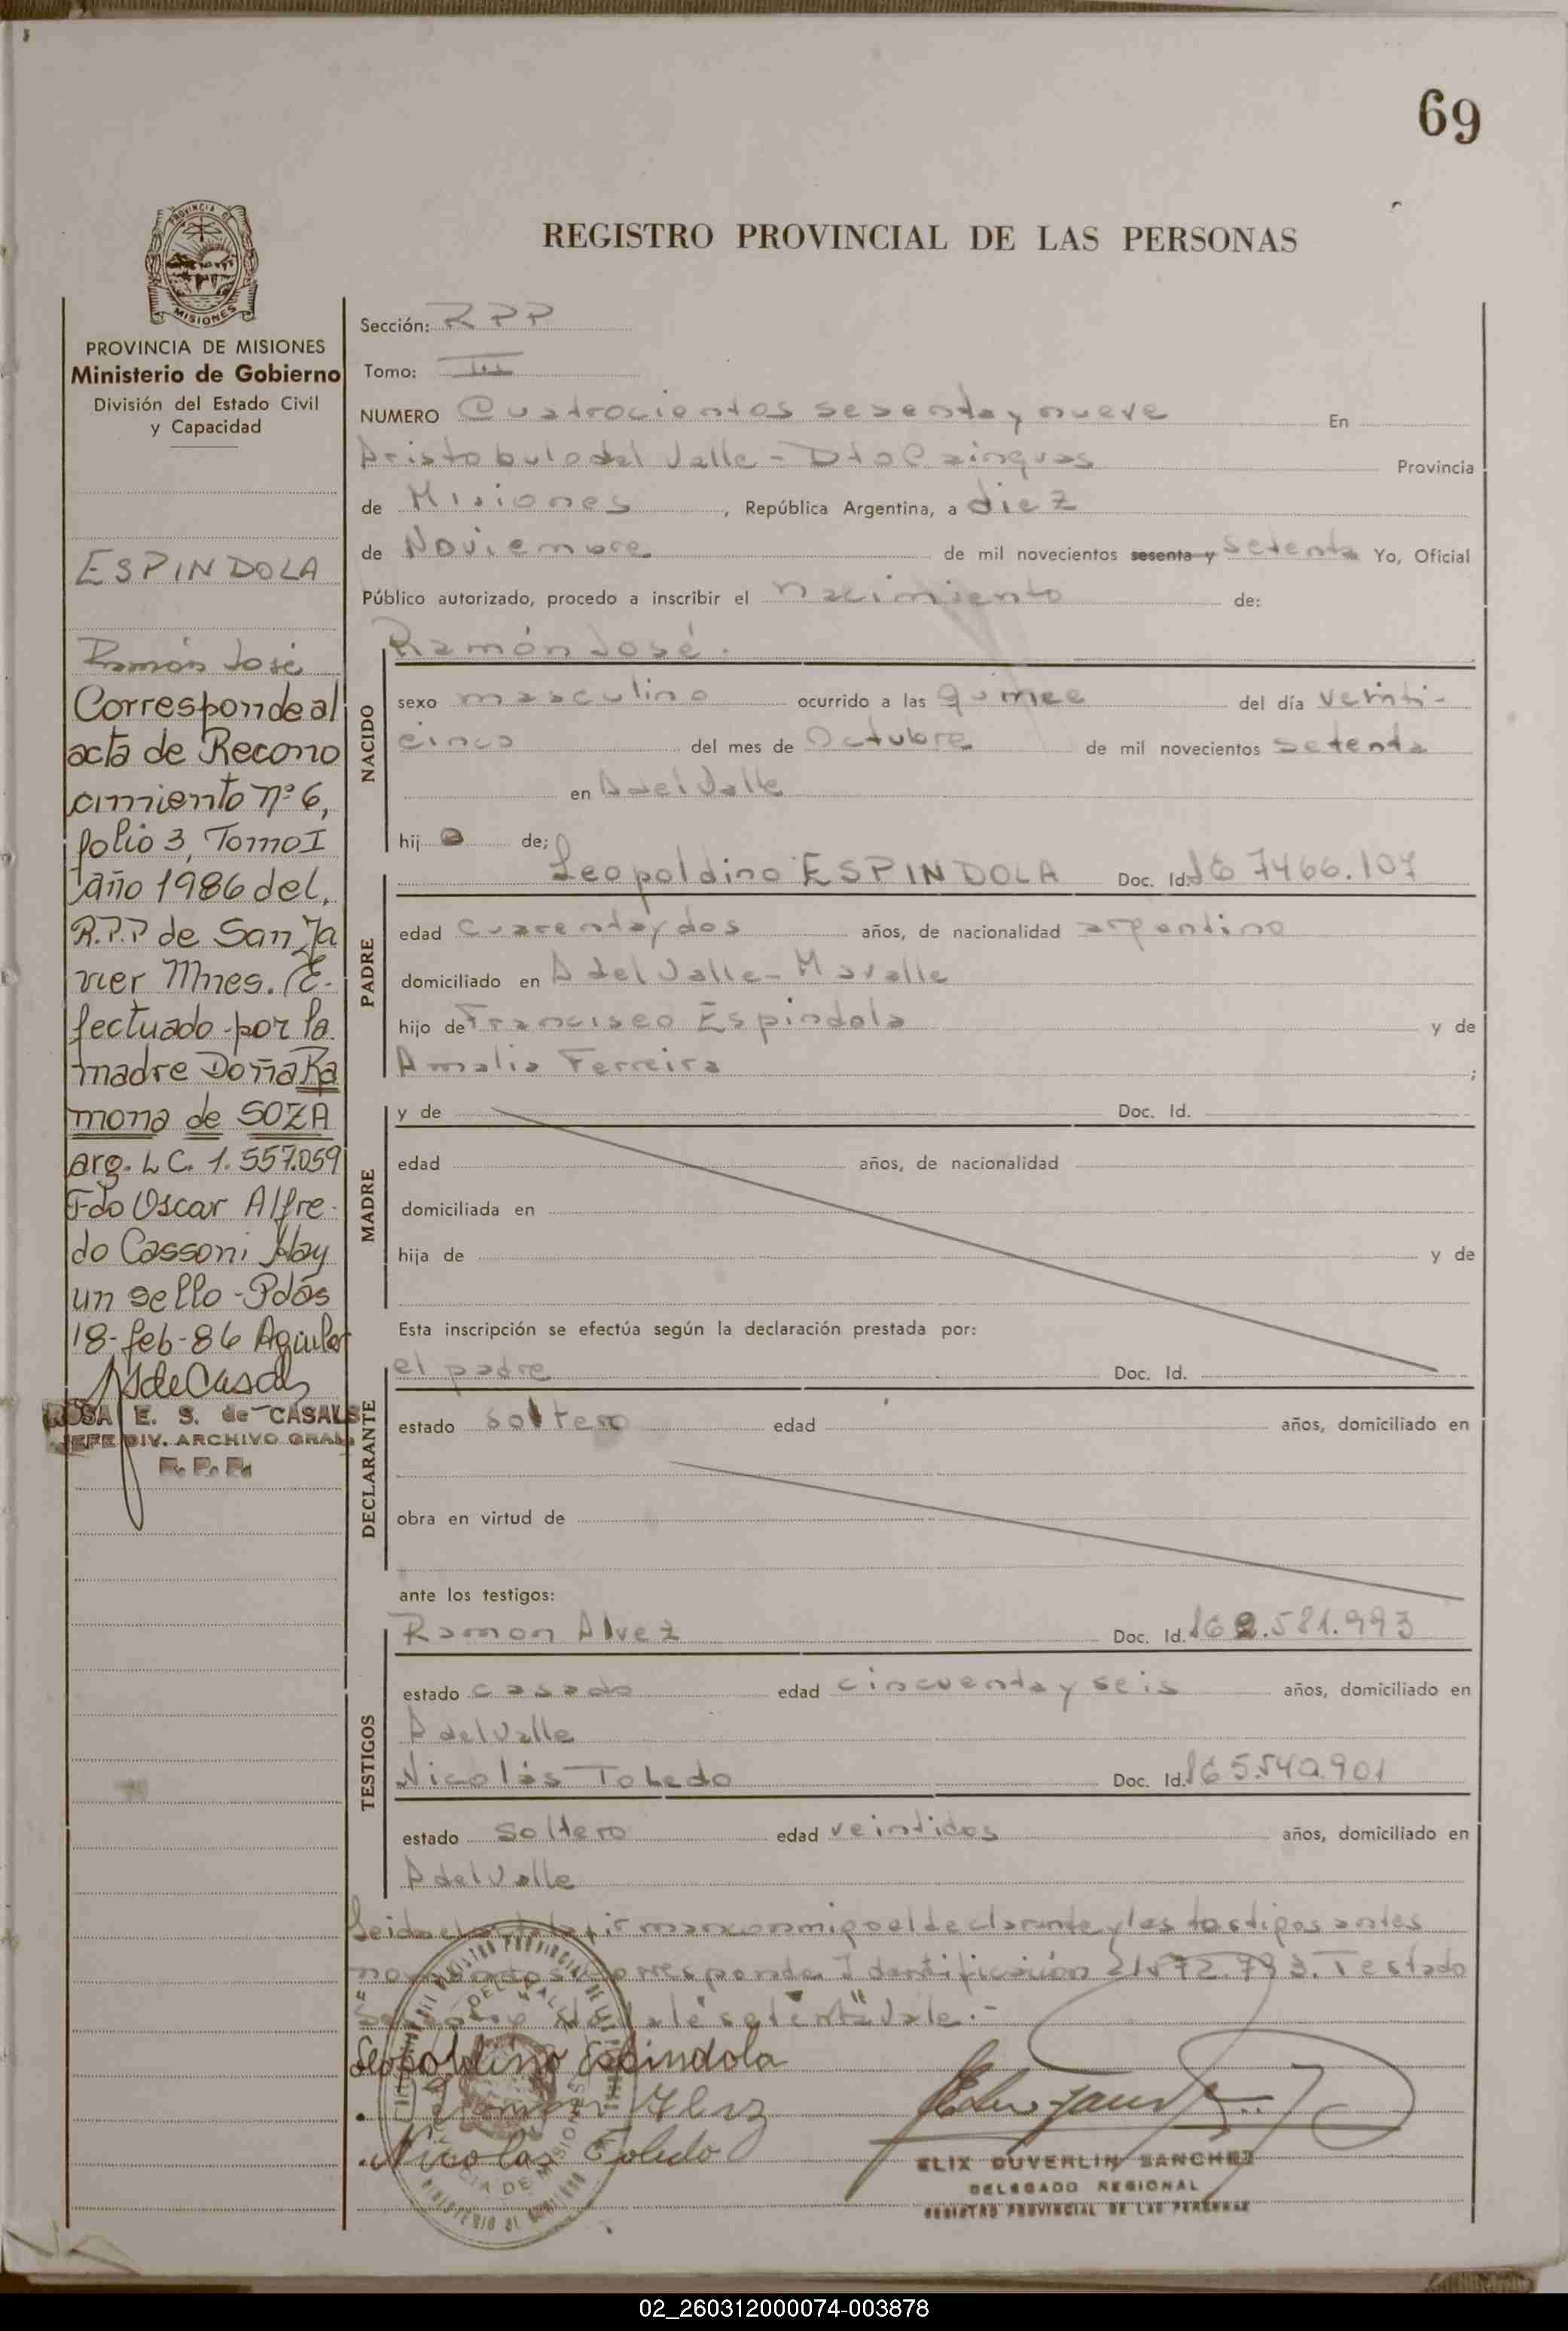 69
PROVINCIA DE
MISIONES
REGISTRO PROVINCIAL DE LAS PERSONAS
PROVINCIA DE MISIONES
Ministerio de Gobierno
División del Estado Civil
y Capacidad
ESPINDOLA
Ramón José
Corresponde al
acta de Recono
cimiento nº 6,
folio 3, Tomo I
año 1986 del
R.P.P de San Ja
vier Mnes. E-
fectuado por la
madre Doña Ra
mona de SOZA
arg. L C. 1.557.059
Fdo Oscar Alfre-
do Cassoni Hay
un sello - Pdas
18-feb-86 Aguilar
ROSA E. S. de CASALS
JEFE DIV. ARCHIVO GRAL
R. P. P.
Sección: RPP
Tomo: III
NUMERO Cuatrocientos sesenta y nueve En
Aristobulo del Valle - Dto Cainguas Provincia
de Misiones, República Argentina, a diez
de Noviembre de mil novecientos sesenta y setenta Yo, Oficial
Público autorizado, procedo a inscribir el nacimiento de:
Ramón José.
NACIDO
sexo masculino ocurrido a las quince del día veinti-
cinco del mes de Octubre de mil novecientos setenta
en A del Valle
hijo de;
PADRE
Leopoldino ESPINDOLA Doc. Id. 7466.107
edad cuarenta y dos años, de nacionalidad argentino
domiciliado en A del Valle -
hijo de Francisco Espindola y de
Amalia Ferreira ;
MADRE
y de Doc. Id.
edad años, de nacionalidad
domiciliada en
hija de y de
Esta inscripción se efectúa según la declaración prestada por:
DECLARANTE
el padre Doc. Id.
estado soltero edad años, domiciliado en
obra en virtud de
ante los testigos:
TESTIGOS
Ramon Alvez Doc. Id. .581.993
estado casado edad cincuenta y seis años, domiciliado en
A del Valle
Nicolás Toledo Doc. Id. 5.540.901
estado soltero edad veintidos años, domiciliado en
A del Valle
Leida el acta la firman conmigo el declarante y los testigos antes
corresponde Identificación Testado
setenta" Vale.-
Leopoldino Espindola
Nicolas Toledo
ELIX DUVERLIN SANCHEZ
DELEGADO REGIONAL
REGISTRO PROVINCIAL DE LAS PERSONAS
02_260312000074-003878